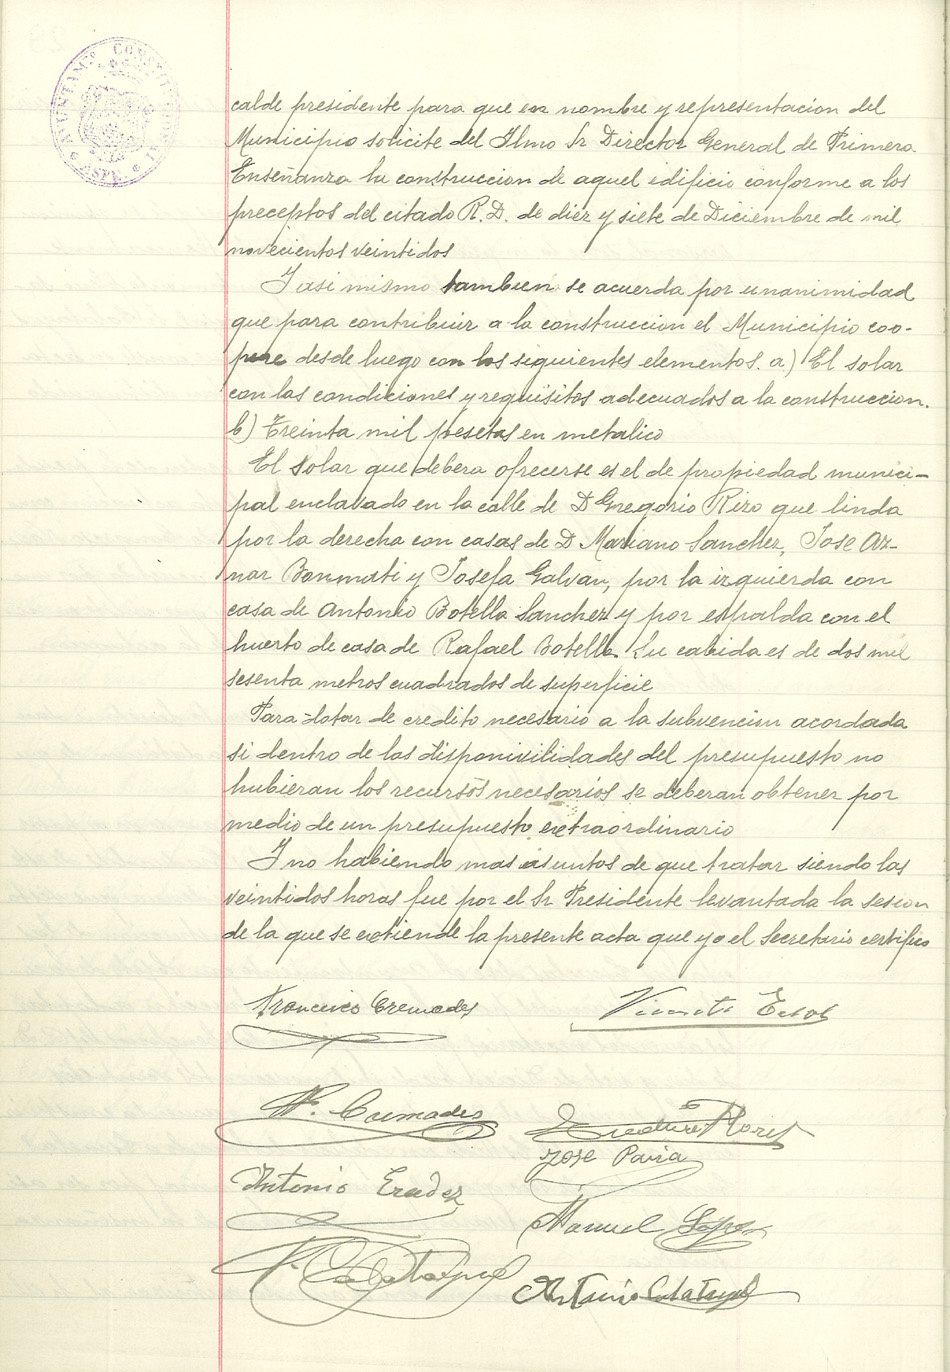 AYUNTAM.º CONSTITUCIONAL
ASPE.
calde presidente para que en nombre y representacion del
Municipio solicite del Ilmo Sr Director General de Primera
Enseñanza la construccion de aquel edificio conforme a los
preceptos del citado R.D. de diez y siete de Diciembre de mil
novecientos veintidos
Y asi mismo tambien se acuerda por unanimidad
que para contribuir a la construccion el Municipio coo-
pere desde luego con los siguientes elementos. a) El solar
con las condiciones y requisitos adecuados a la construccion.
b) Treinta mil pesetas en metalico
El solar que debera ofrecerse es el de propiedad munici-
pal enclavado en la calle de D Gregorio Rizo que linda
por la derecha con casas de D Mariano Sanchez, Jose Az-
nar Bonmati y Josefa Galvan, por la izquierda con
casa de Antonio Botella Sanchez y por espalda con el
huerto de casa de Rafael Botella. Su cabida es de dos mil
sesenta metros cuadrados de superficie
Para dotar de credito necesario a la subvencion acordada
si dentro de las disponivilidades del presupuesto no
hubieran los recursos necesarios se deberan obtener por
medio de un presupuesto extraordinario
Y no habiendo mas asuntos de que tratar siendo las
veintidos horas fue por el Sr Presidente levantada la sesion
de la que se extiende la presente acta que yo el Secretario certifico
Francisco Cremades
Vicente
Cremades
Jose Pavia
Antonio
Manuel Lopez
Calatayud
Antonio Calatayud